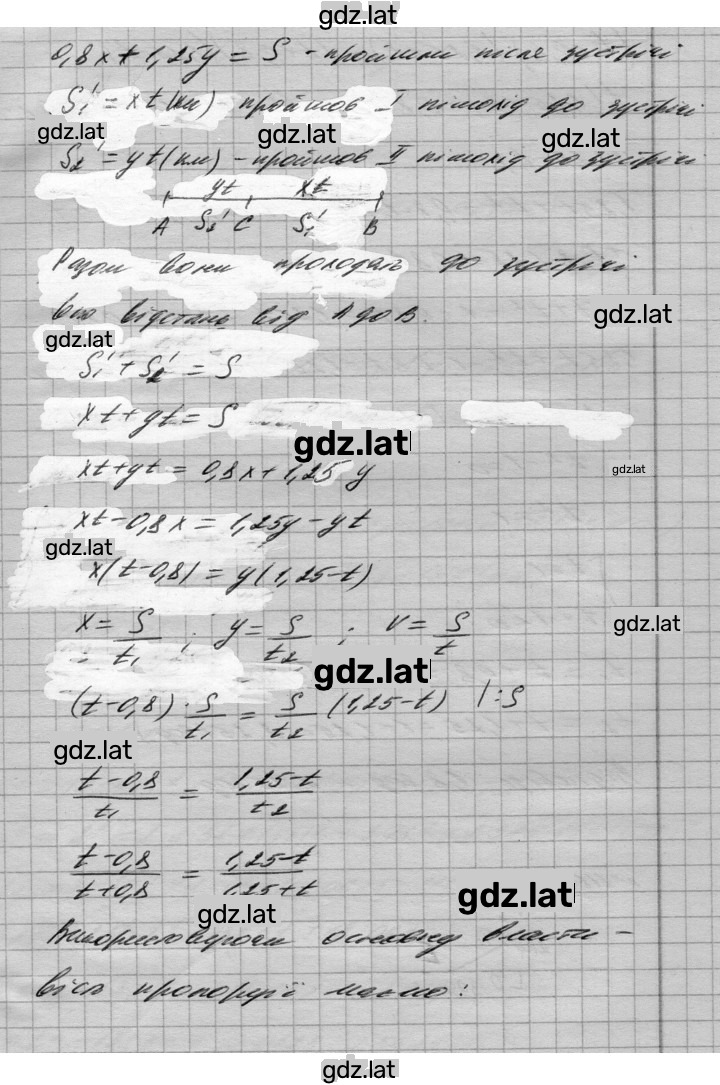 gdz.lat
0,8x + 1,25y = S - пройшли після зустрічі
S₁' = xt (км) пройшов I пішохід до зустрічі
gdz.lat gdz.lat gdz.lat
S₂' = yt (км) - пройшов II пішохід до зустрічі
yt xt
A S₂' C S₁' B
Разом вони проходять до зустрічі
всю відстань від A до B.
gdz.lat
gdz.lat
S₁' + S₂' = S
xt + yt = S
gdz.lat
xt + yt = 0,8x + 1,25y
gdz.lat
xt - 0,8x = 1,25y - yt
gdz.lat
x(t - 0,8) = y(1,25 - t)
x = S/t₁ ; y = S/t₂ ; v = S/t
gdz.lat
gdz.lat
(t - 0,8) · S/t₁ = S/t₂ (1,25 - t) | : S
gdz.lat
(t - 0,8)/t₁ = (1,25 - t)/t₂
(t - 0,8)/(t + 0,8) = (1,25 - t)/(1.25 + t)
gdz.lat
gdz.lat
Використовуючи основну власти-
вість пропорції маємо:
gdz.lat